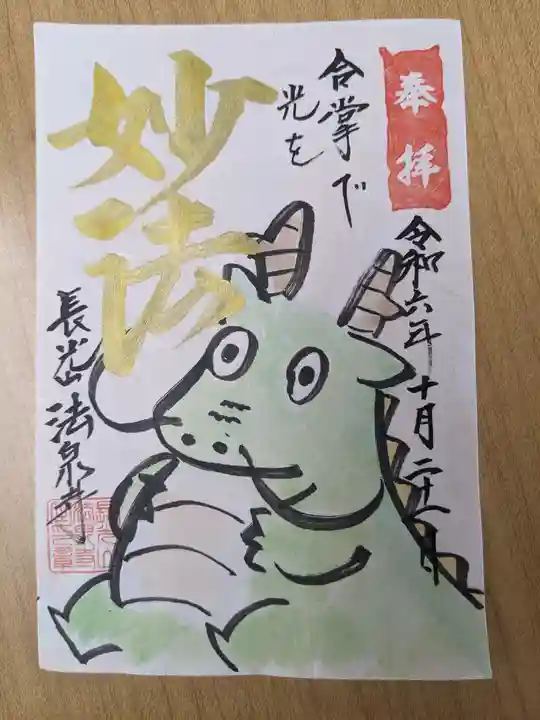 奉拝
令和六年十月二十一日
合掌で
光を
妙法
長光山 法泉寺